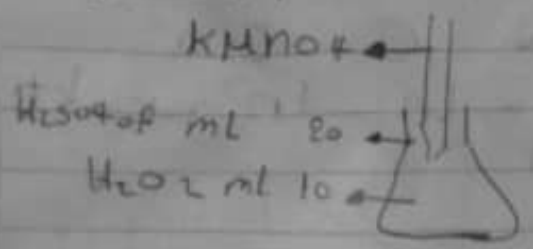 KMnO4
H2SO4 of mL 20
H2O2 ml 10